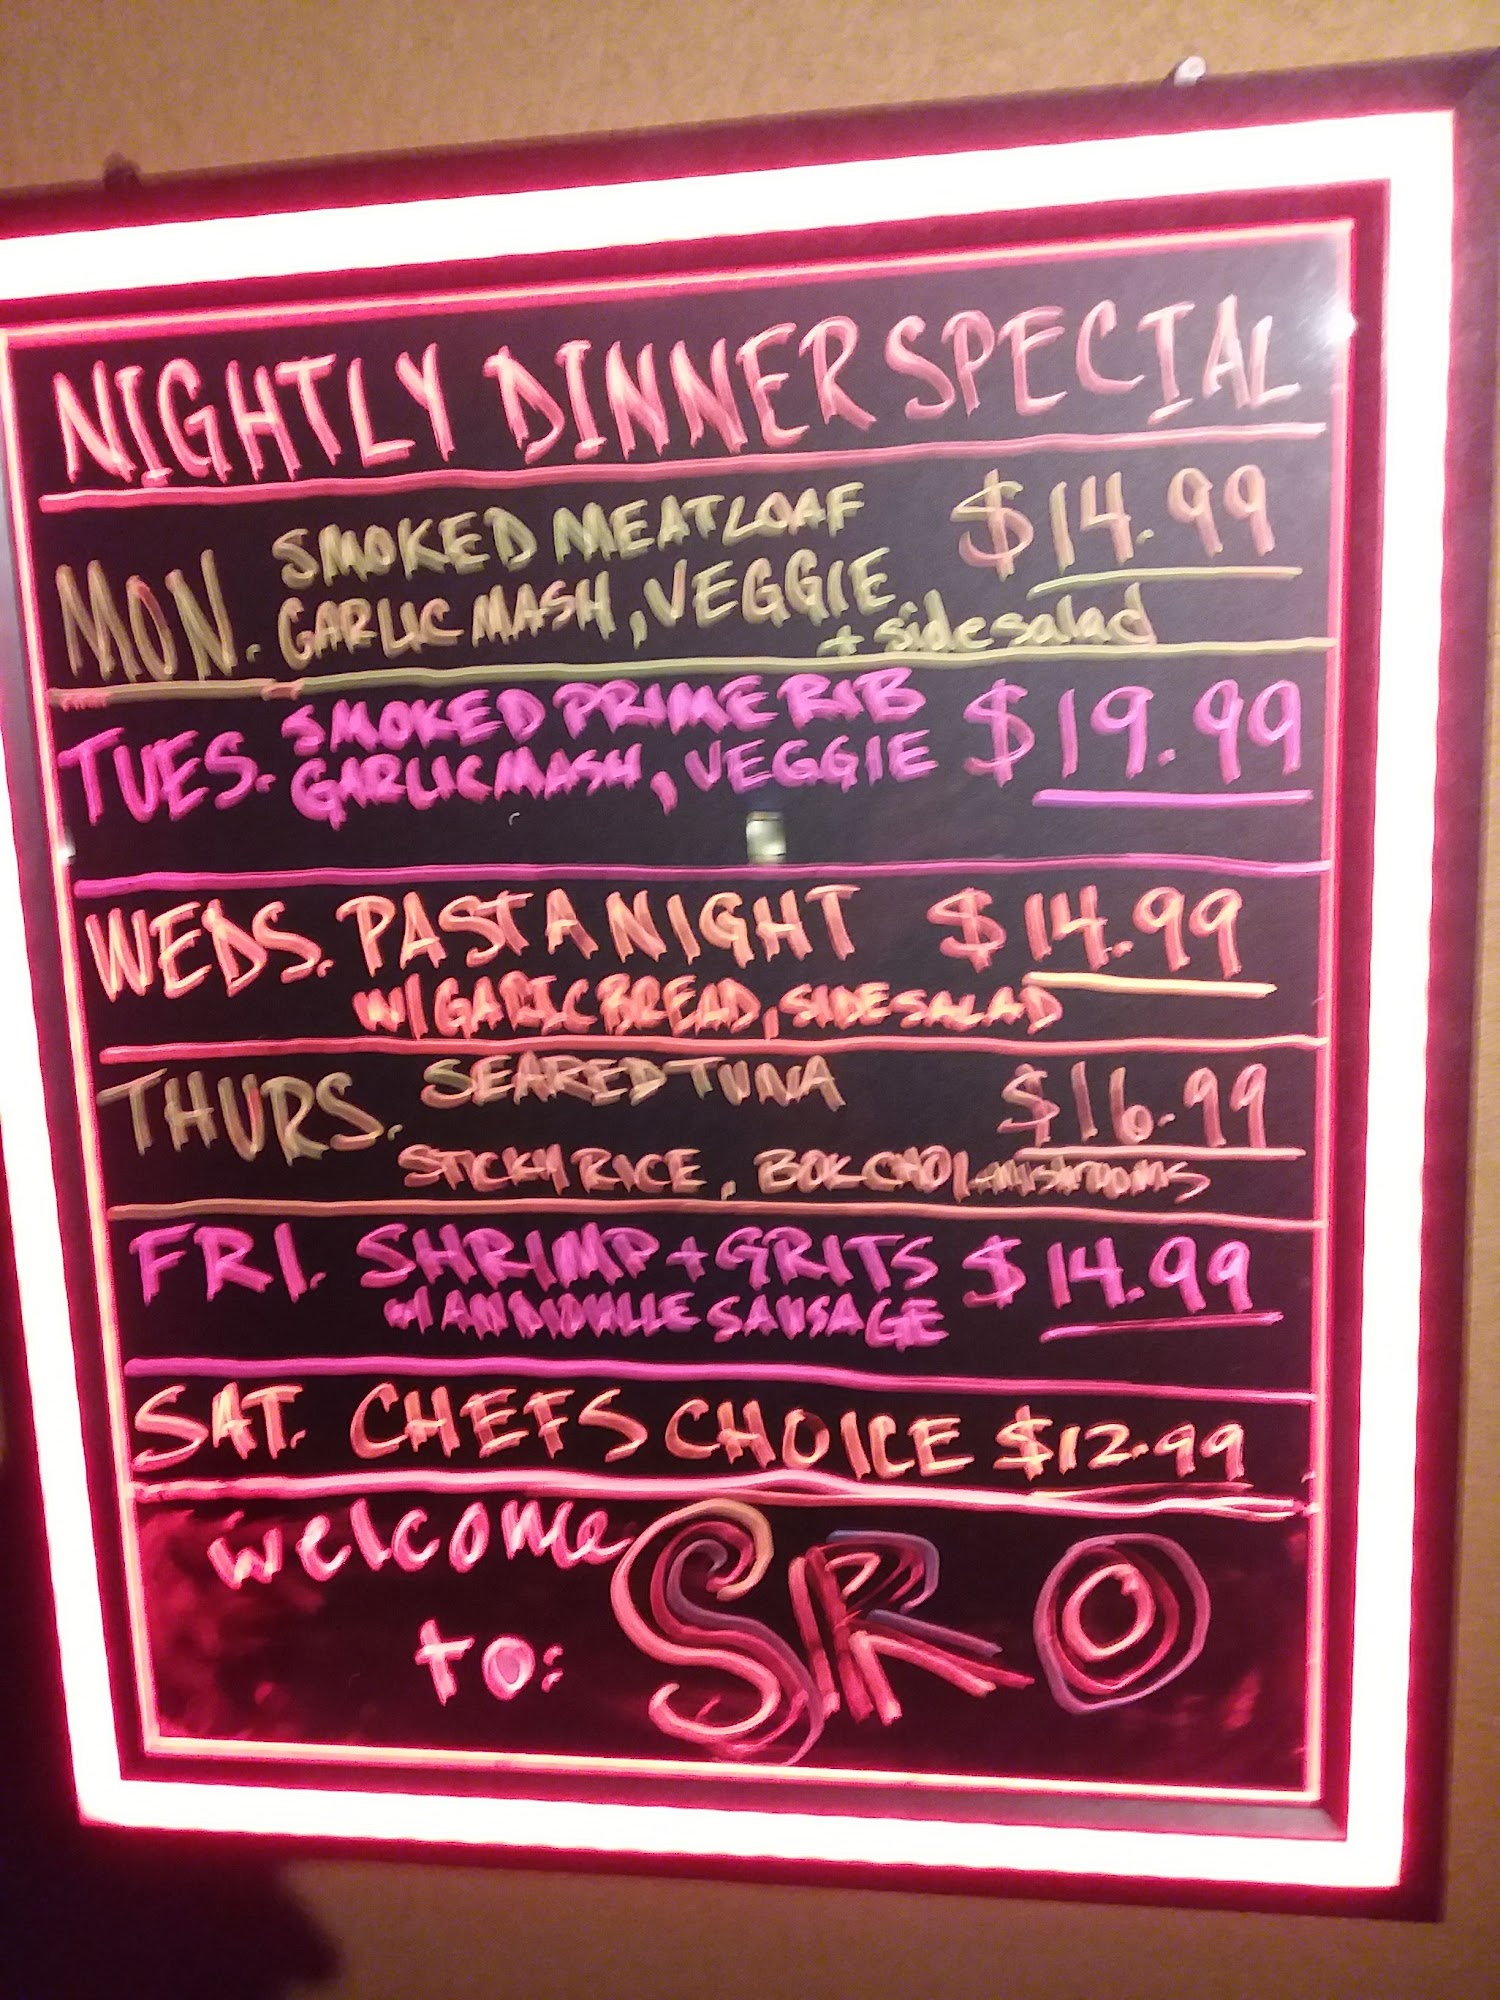 NIGHTLY DINNER SPECIAL
MON. SMOKED MEATLOAF $14.99
GARLIC MASH, VEGGIE
+ side salad
TUES. SMOKED PRIME RIB $19.99
GARLIC MASH, VEGGIE
WEDS. PASTA NIGHT $14.99
W/ GARLIC BREAD, SIDE SALAD
THURS. SEARED TUNA $16.99
STICKY RICE, BOK CHOI, MUSHROOMS
FRI. SHRIMP + GRITS $14.99
W/ ANDOUILLE SAUSAGE
SAT. CHEFS CHOICE $12.99
welcome
to: SRO